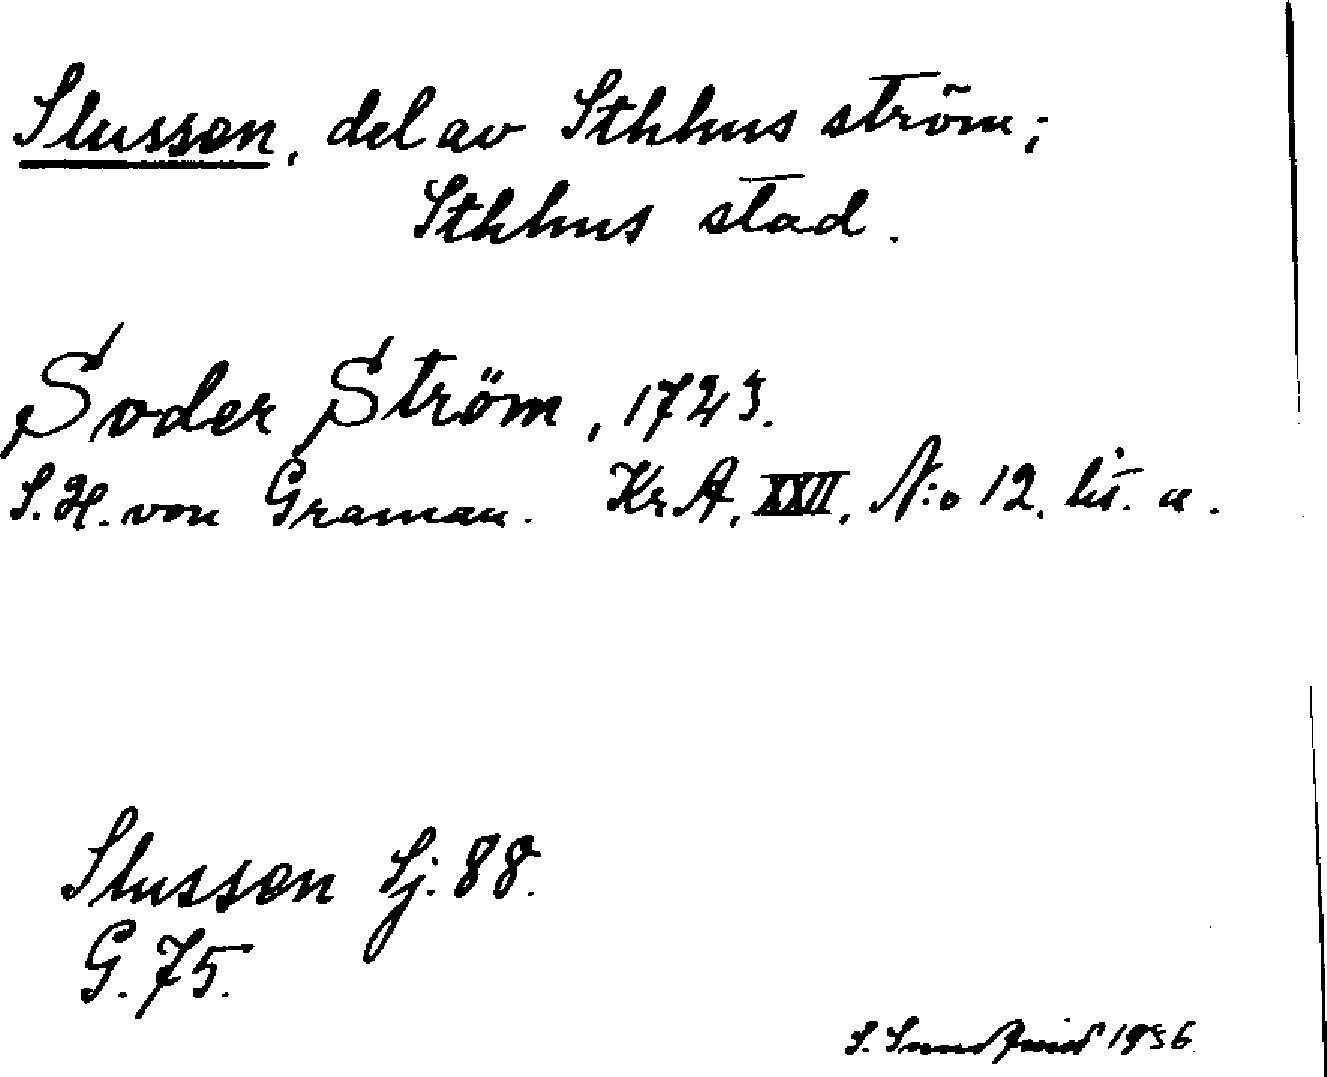 Slussen, del av Sthlms ström;
Sthlms stad.
Soder Ström, 1723.
S. H. von Graman. Kr A, XXII, N:o 12. lit. a.
Slussen Sj. 88.
G. 75.
S. 1936